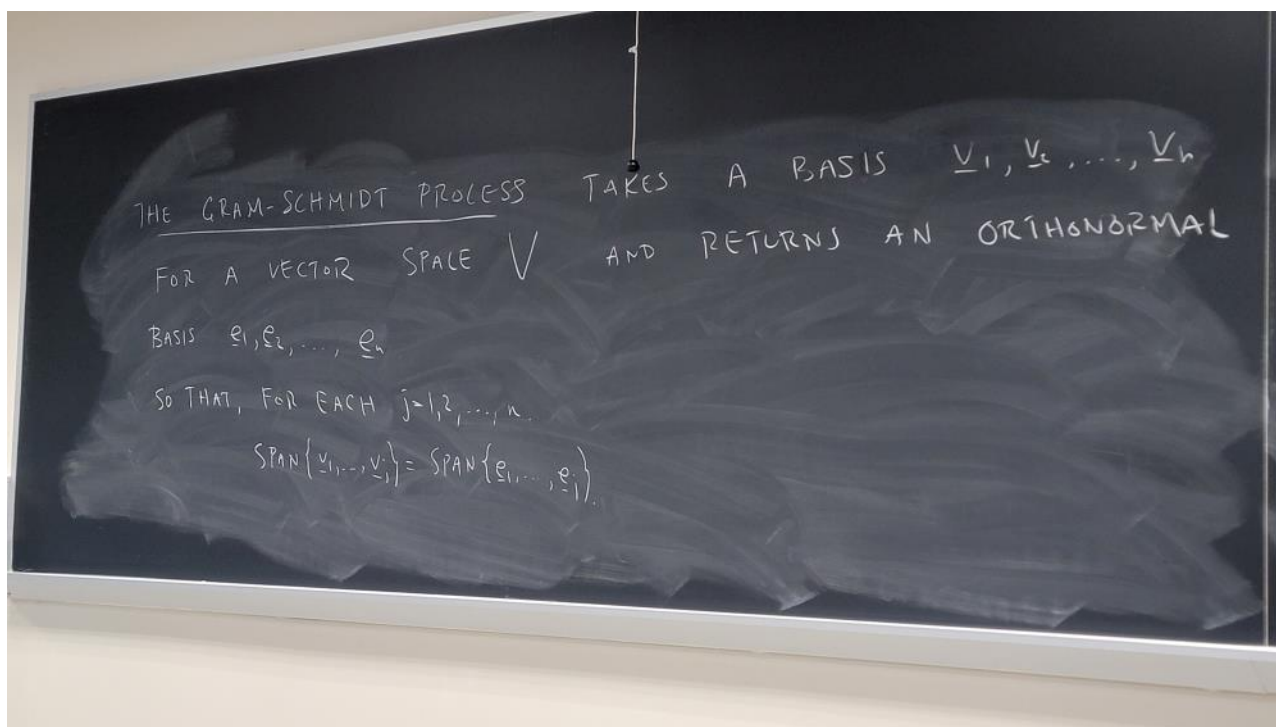 THE GRAM-SCHMIDT PROCESS TAKES A BASIS v̲₁, v̲₂, ..., v̲ₙ
FOR A VECTOR SPACE V AND RETURNS AN ORTHONORMAL
BASIS e̲₁, e̲₂, ..., e̲ₙ
SO THAT, FOR EACH j=1,2,...,n.
SPAN{v̲₁,...,v̲ⱼ} = SPAN{e̲₁,...,e̲ⱼ}.